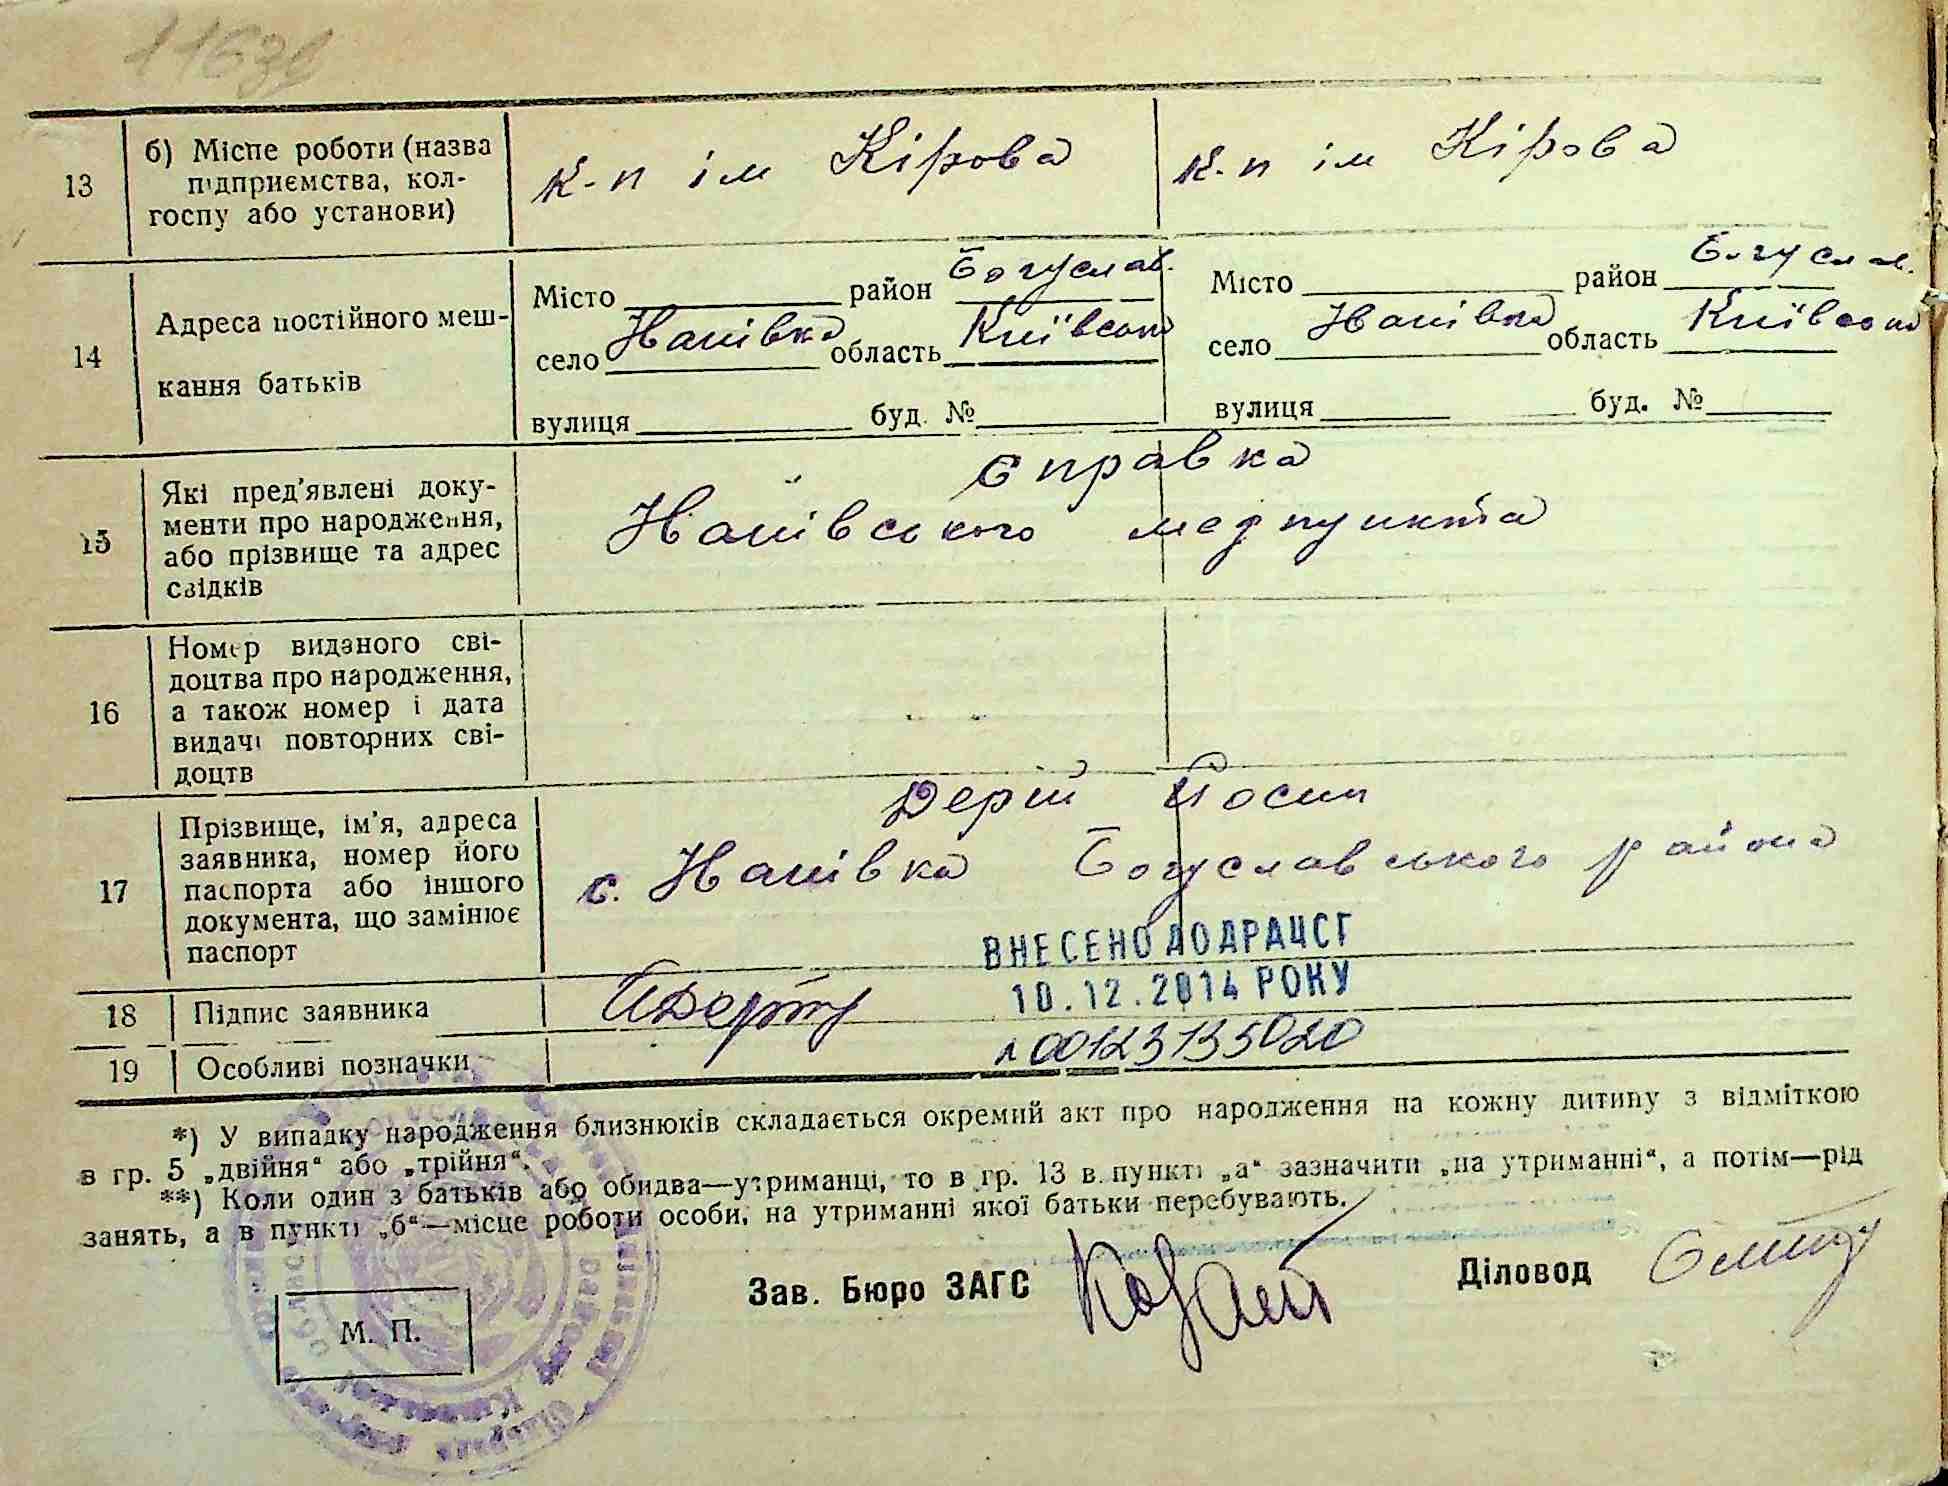 1163б
13
б) Місце роботи (назва
підприємства, кол-
госпу або установи)
к-п ім Кірова
к-п ім Кірова
14
Адреса постійного меш-
кання батьків
Місто район Богуслав.
село Нанівка область Київськ
вулиця буд. №
Місто район Богуслав.
село Нанівка область Київськ
вулиця буд. №
15
Які пред'явлені доку-
менти про народження,
або прізвище та адрес
свідків
Справка
Нанівського медпункта
16
Номер виданого сві-
доцтва про народження,
а також номер і дата
видачі повторних сві-
доцтв
17
Прізвище, ім'я, адреса
заявника, номер його
паспорта або іншого
документа, що замінює
паспорт
Дерій Йосип
с. Нанівка Богуславського района
ВНЕСЕНО ДО ДРАЦСГ
10.12.2014 РОКУ
18
Підпис заявника
19
Особливі позначки
00123135020
*) У випадку народження близнюків складається окремий акт про народження на кожну дитину з відміткою
в гр. 5 „двійня“ або „трійня“.
**) Коли один з батьків або обидва—утриманці, то в гр. 13 в пункті „а“ зазначити „на утриманні“, а потім—рід
занять, а в пункті „б“—місце роботи особи, на утриманні якої батьки перебувають.
Зав. Бюро ЗАГС
Діловод
М. П.